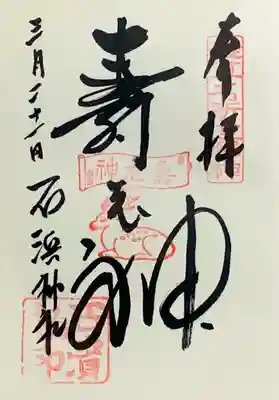 奉拝
壽老神
三月二十一日 石濱神社